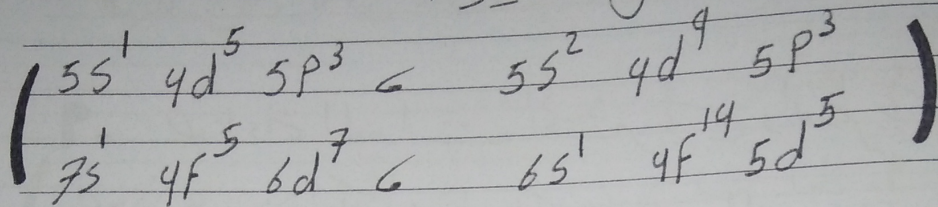 ( 5s¹ 4d⁵ 5p³ < 5s² 4d⁴ 5p³ )
7s¹ 4f⁵ 6d⁷ < 6s¹ 4f¹⁴ 5d⁵